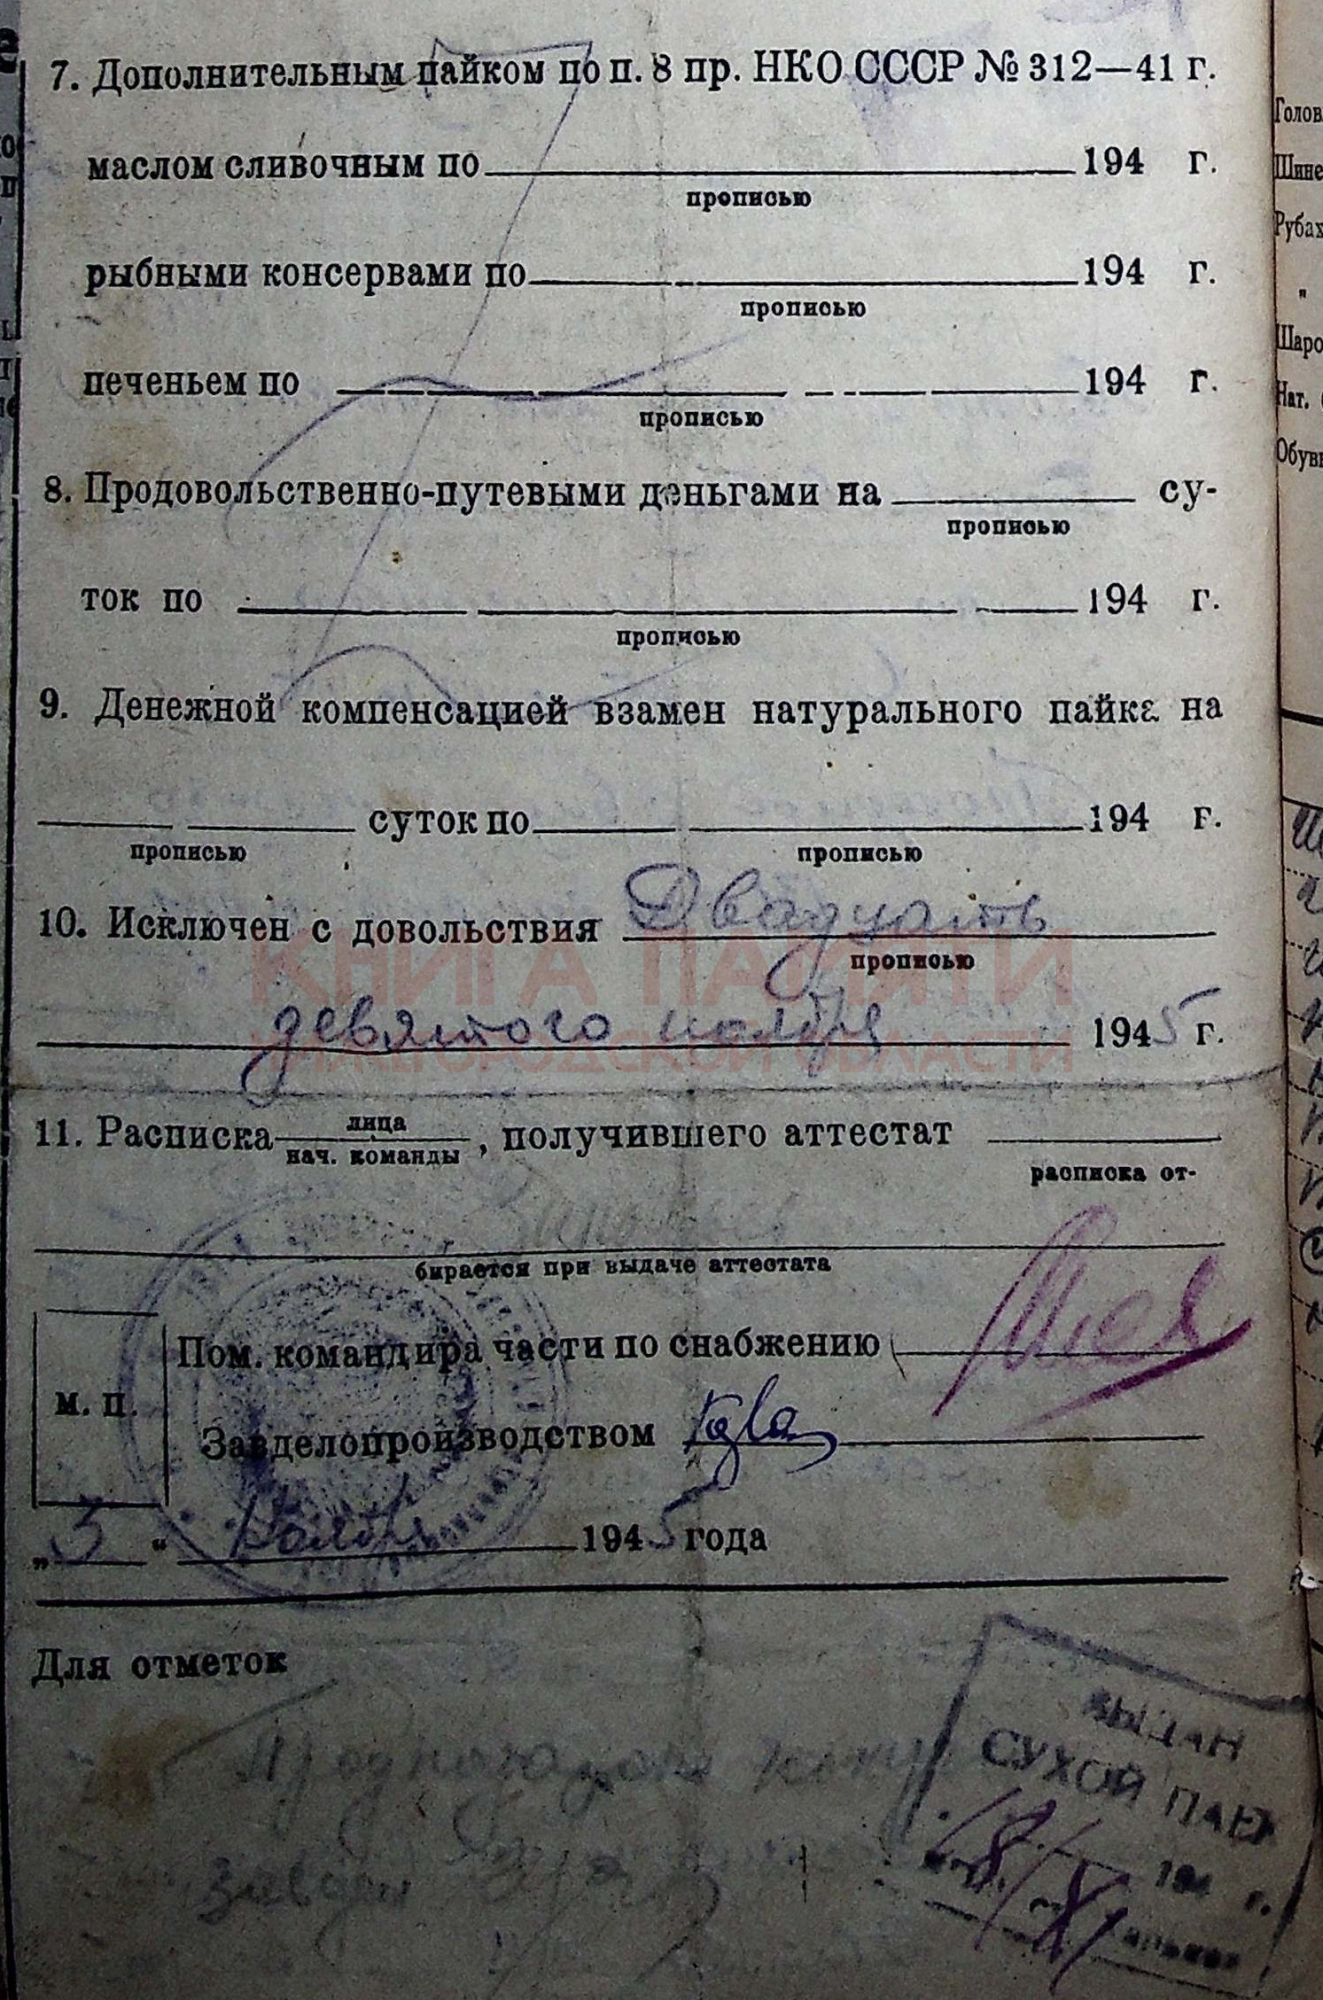 7. Дополнительным пайком по п. 8 пр. НКО СССР № 312—41 г.
маслом сливочным по 194 г.
прописью
рыбными консервами по 194 г.
прописью
печеньем по 194 г.
прописью
8. Продовольственно-путевыми деньгами на су-
прописью
ток по 194 г.
прописью
9. Денежной компенсацией взамен натурального пайка на
суток по 194 г.
прописью прописью
10. Исключен с довольствия Двадцать
прописью
девятого ноября 1945 г.
КНИГА ПАМЯТИ
НИЖЕГОРОДСКОЙ ОБЛАСТИ
11. Расписка лица
нач. команды , получившего аттестат
расписка от-
бирается при выдаче аттестата
Пом. командира части по снабжению
М. П.
Завделопроизводством
„5“ Ноября 1945 года
Для отметок
ВЫДАН
СУХОЙ ПАЕК
194 г.
Голов
Шине
Рубах
"
Шаро
Нат.
Обувь